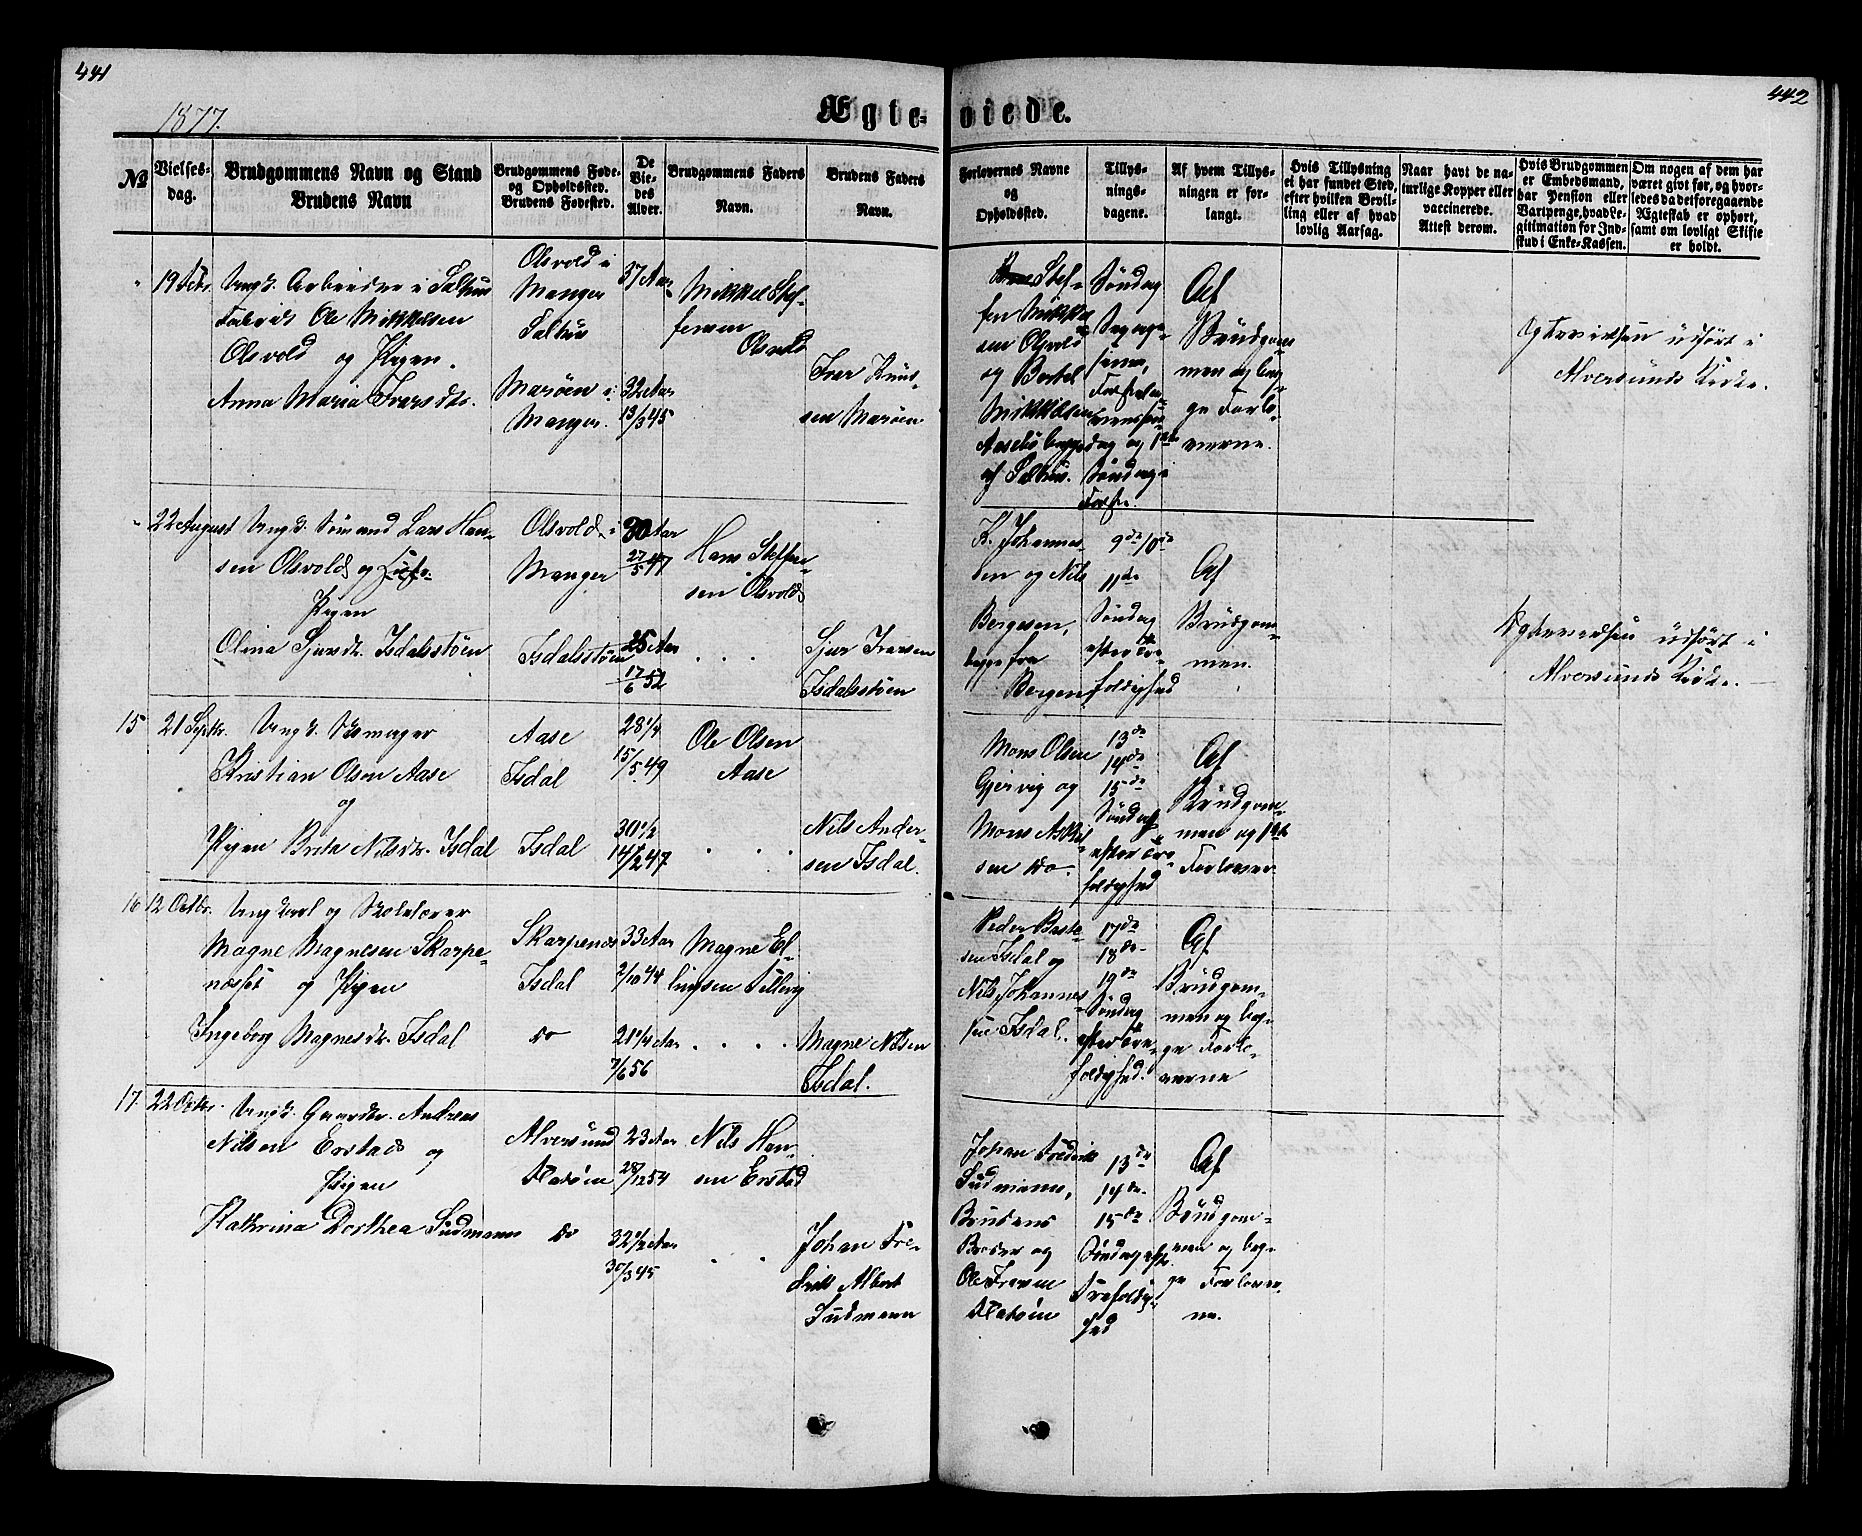 441
442
1877.
Ægteviede.
No
Vielses-
dag.
Brudgommens Navn og Stand
Brudens Navn
Brudgommens Føde-
og Opholdssted.
Brudens Fødested.
De
Vie-
des
Alder.
Brudgommens Faders
Navn.
Brudens Faders
Navn.
Forlovernes Navne
og
Opholdssted.
Tillys-
nings-
dagene.
Af hvem Tillys-
ningen er for-
langt.
Hvis Tillysning
ei har fundet Sted,
efter hvilken Bevil-
ling eller af hvad
lovlig Aarsag.
Naar havt de na-
turlige Kopper eller
vaccinerede.
Attest derom.
Hvis Brudgommen
er Embedsmand,
har Pension eller
Vartpenge, hvad Le-
gitimation for Ind-
skud i Enke-Kassen.
Om nogen af dem har
været givt før, og hvor-
ledes da det foregaaende
Ægteskab er ophørt,
samt om lovligt Skifte
er holdt.
19 Febr.
Ungk. Arbeider i Salhus
Ole Mikkelsen
Olsvold og Pigen
Anna Maria Iversdtr.
Olsvold i
Manger
Salhus
Marøen i
Manger.
37 Aar
32 Aar
13/3 45
Mikkel Stef-
fensen
Olsvold
Iver Knud-
sen Marøen
Stef-
fen Mikkel-
sen Olsvold
og Bertel
Mikkelsen
begge
af Salhus.
Søndag
Fastela-
venssøn-
dag og 1ste
Søndag i
Faste.
Af
Brudgom-
men og beg-
ge Forlo-
verne.
Ægtevielsen udført i
Alversunds Kirke.
22 August
Ungk. Sømand Lars Han-
sen Olsvold og
Pigen
Olina Sjursdtr. Isdalsstøen
Olsvold i
Manger
Isdalsstøen
30 Aar
27/5 47
25 Aar
17/6 52
Hans Steffen-
sen Olsvold
. . .
Sjur Iversen
Isdalsstøen
K. Johannes-
sen og Nils
Bergesen,
begge fra
Bergen
9de 10de
11de
Søndag
efter Tre-
foldighed
Af
Brudgom-
men.
Ægtevielsen udført i
Alversunds Kirke.
15
21 Septbr.
Ungk. Skomager
Kristian Olsen Aase
og
Pigen Brita Nilsdtr. Isdal
Aase
Isdal
Isdal
28 1/4
15/5 49
30 1/2
14/2 47
Ole Olsen
Aase
. .
Nils Ander-
sen Isdal.
Mons Olsen
Gjervig og
Mons Askil-
sen do
13de
14de
15de
Søndag
efter Tre-
foldighed
Af
Brudgom-
men og 1ste
Forlover
16
12 Octbr.
Ungkarl og Skolelærer
Magne Magnesen Skarpe-
næsset og Pigen
Ingeborg Magnesdtr. Isdal
Skarpenes
Isdal
do
33 Aar
2/10 44
21 1/4 Aar
7/6 56
Magne El-
lingsen
. . . .
Magne Nilsen
Isdal.
Peder
sen Isdal og
Nils Johannes-
sen Isdal.
17de
18de
19de
Søndag
efter Tre-
foldighed.
Af
Brudgom-
men og beg-
ge Forlo-
verne
17.
22 Octbr.
Ungk. Gaardbr. Andreas
Nilsen Erstad og
Pigen
Kathrina Dorthea Sudmann
Alversund
Flatøen
do
23 Aar
28/12 54
32 1/2 Aar
30/3 45
Nils Han-
sen Erstad
. .
Johan Fre-
drik Albert
Sudmann
Johan Fredrik
Sudmann,
Brudens
Broder og
Ole Iversen
Flatøen
13de
14de
15de
Søndag eftr.
Trefoldig-
hed
Af
Brudgom-
men og beg-
ge Forlover-
ne.